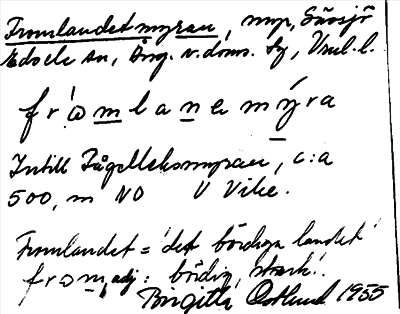 Fromlandetmyran, myr, Sävsjö
Edsele sn, Ång. v. doms. Sg, Vnl. l.
fròmlanemýra
Intill Fågelleksmyran, c:a
500, m NO V Vike.
Fromlandet = 'det bördiga landet'
from, adj: bördig, stark'.
Birgitta Östlund 1955